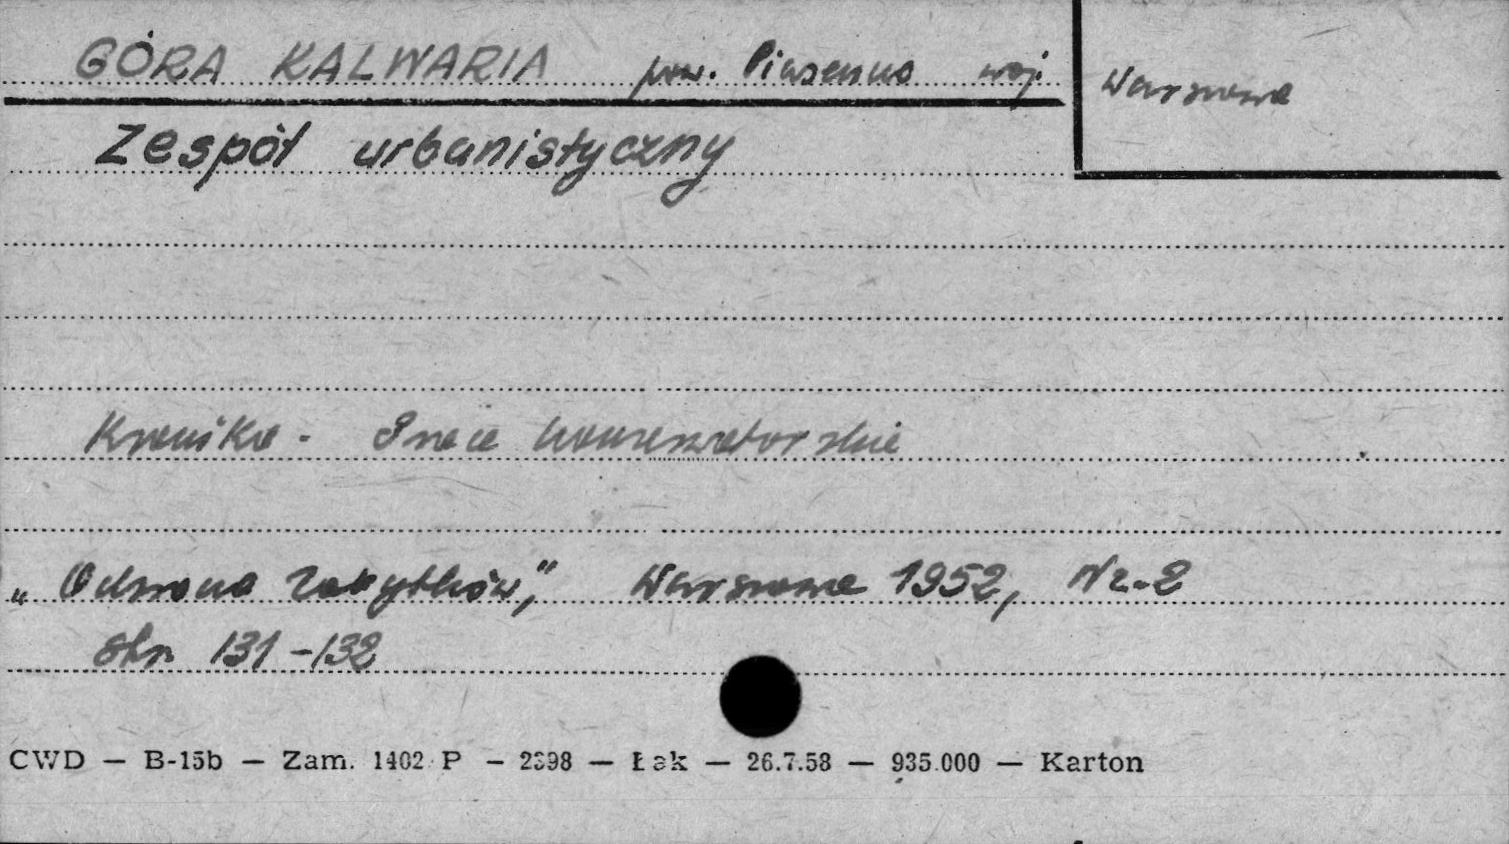 GÓRA KALWARIA pow. Piaseczno woj. Warszawa
Zespół urbanistyczny
Kronika - Prace konserwatorskie
„Ochrona Zabytków," Warszawa 1952, Nr. 2
str. 131-132
CWD — B-15b — Zam. 1402 P — 2398 — Łak — 26.7.58 — 935.000 — Karton